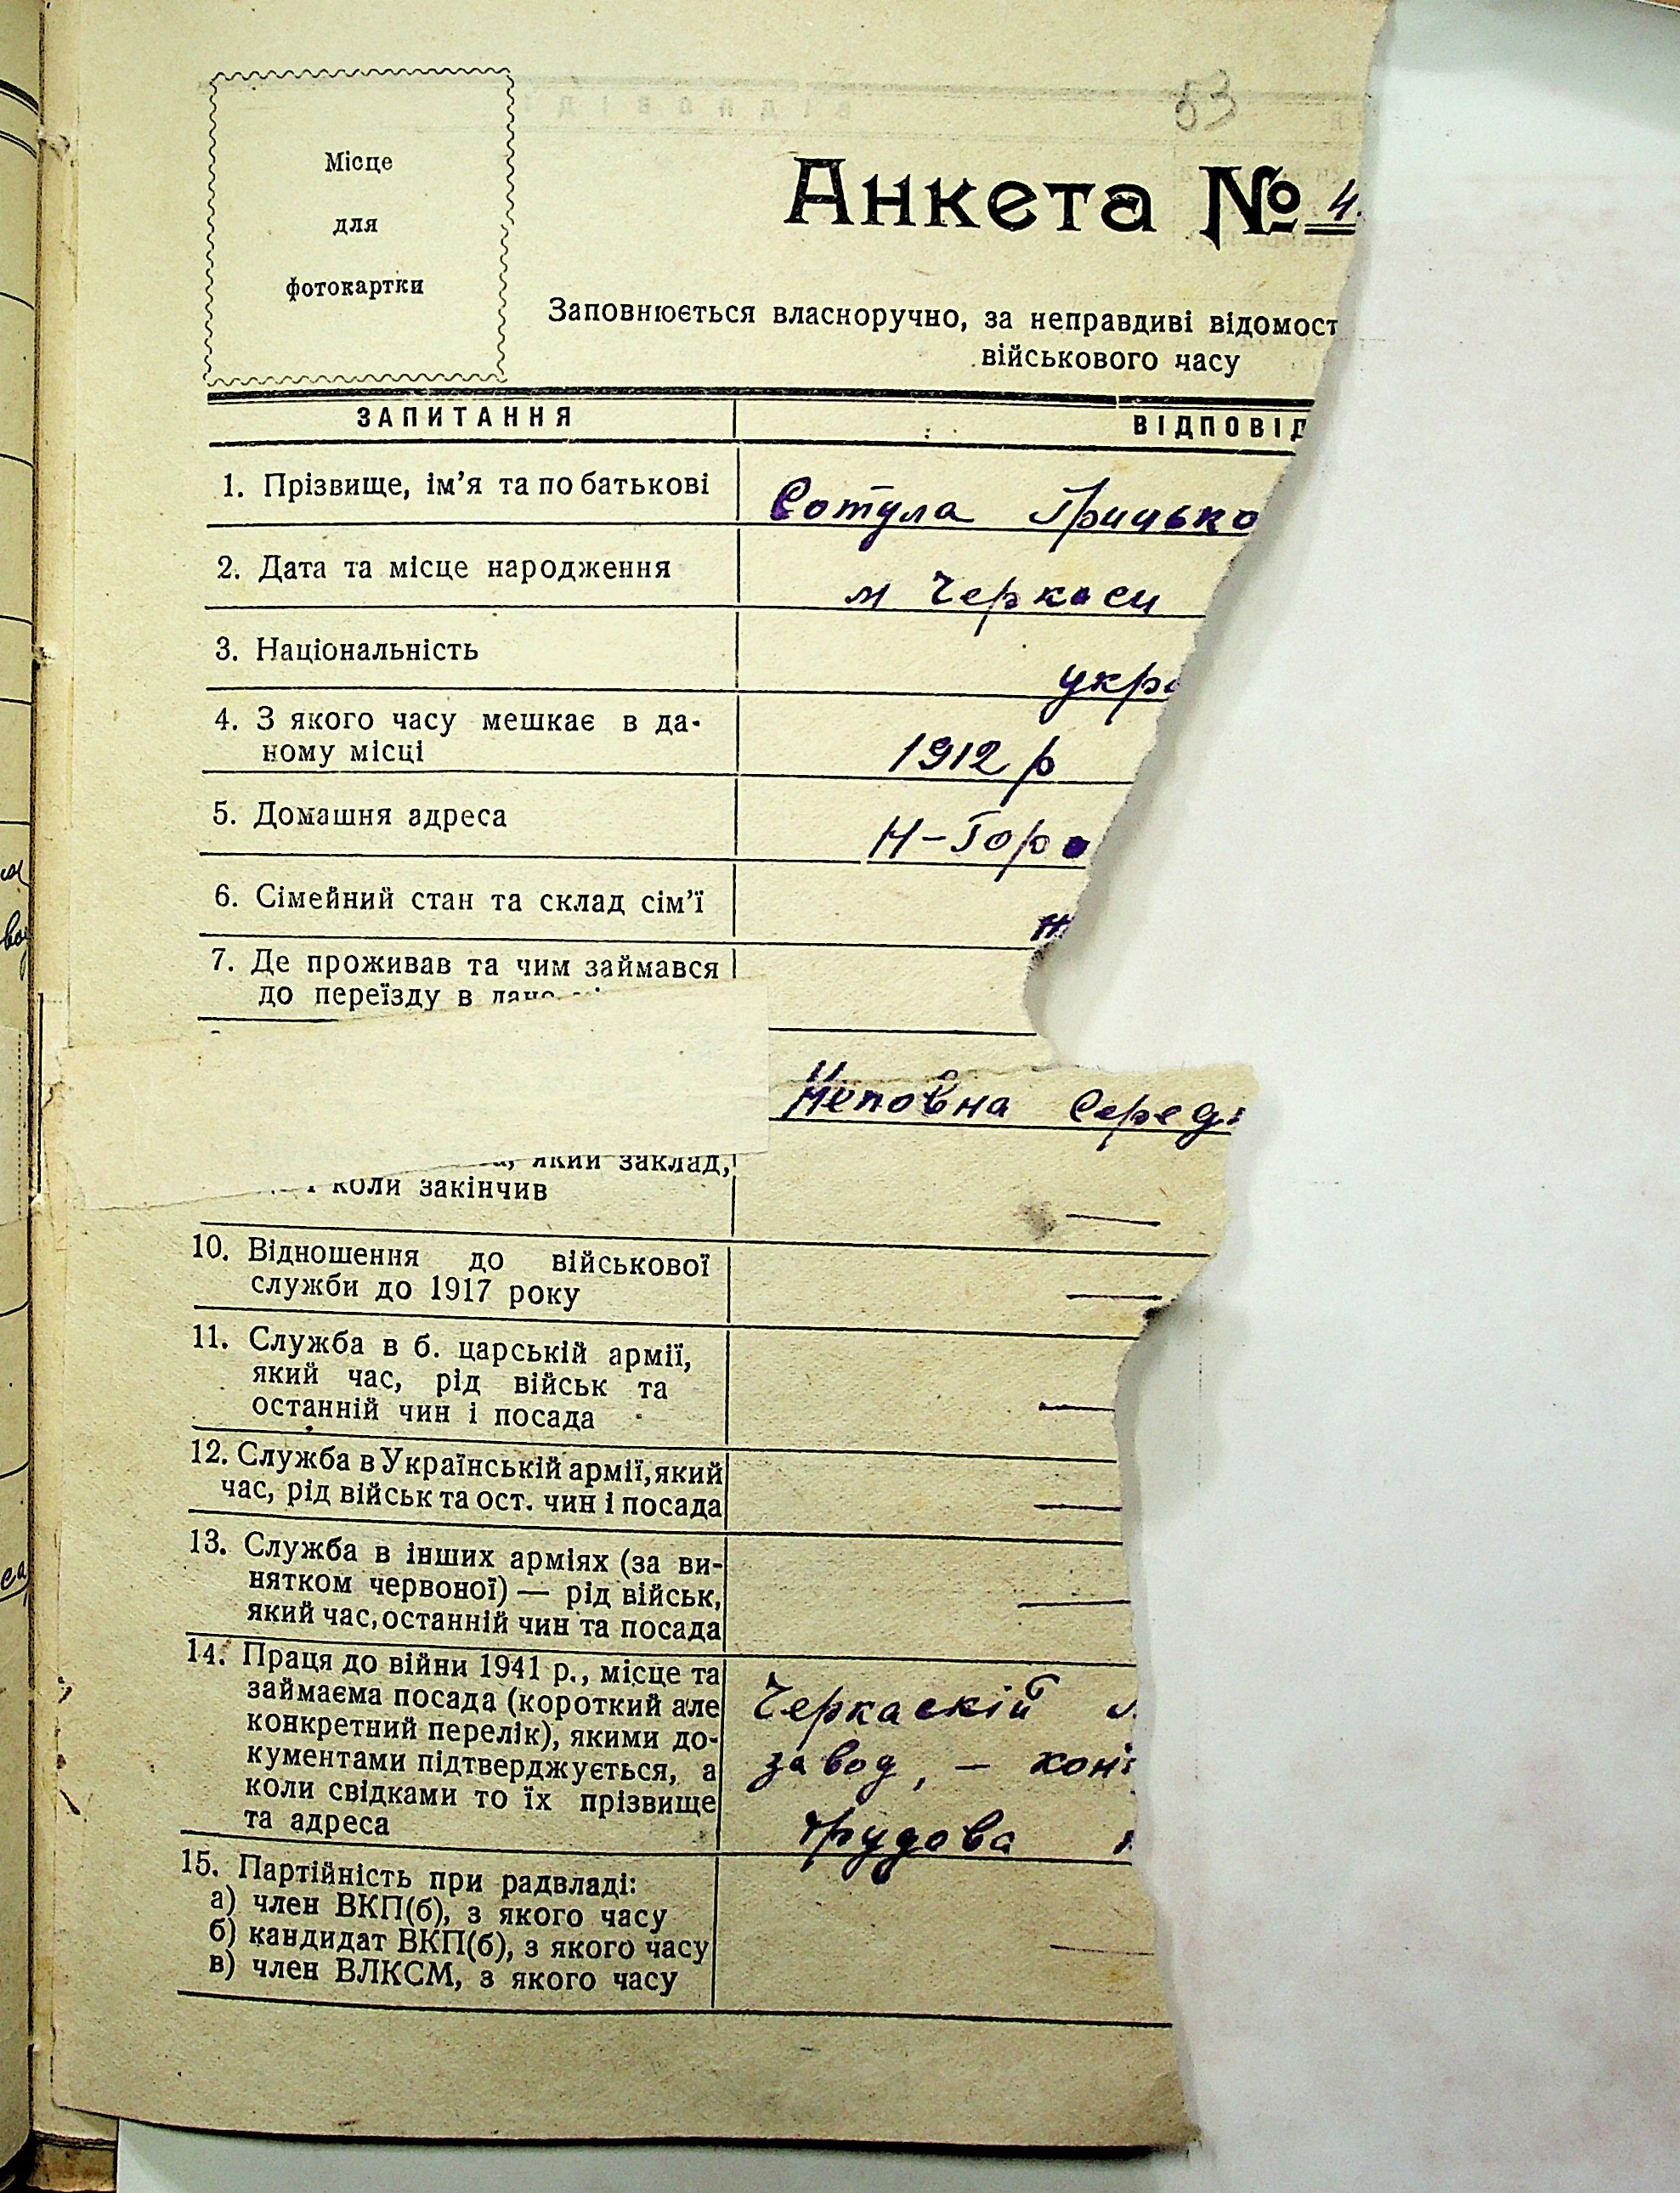 53
Місце
для
фотокартки
Анкета № 4
Заповнюється власноручно, за неправдиві відомост
військового часу
ЗАПИТАННЯ
ВІДПОВІД
1. Прізвище, ім’я та по батькові
Сотула Грицько
2. Дата та місце народження
м Черкаси
3. Національність
укра
4. З якого часу мешкає в да-
ному місці
1912 р
5. Домашня адреса
Н-Горо
6. Сімейний стан та склад сім’ї
7. Де проживав та чим займався
до переїзду в дано
Неповна серед
який заклад,
і коли закінчив
—
10. Відношення до військової
служби до 1917 року
—
11. Служба в б. царській армії,
який час, рід військ та
останній чин і посада
—
12. Служба в Українській армії, який
час, рід військ та ост. чин і посада
—
13. Служба в інших арміях (за ви-
нятком червоної) — рід військ,
який час, останній чин та посада
—
14. Праця до війни 1941 р., місце та
займаєма посада (короткий але
конкретний перелік), якими до-
кументами підтверджується, а
коли свідками то їх прізвище
та адреса
Черкаскій
завод, – кон
трудова
15. Партійність при радвладі:
а) член ВКП(б), з якого часу
б) кандидат ВКП(б), з якого часу
в) член ВЛКСМ, з якого часу
—